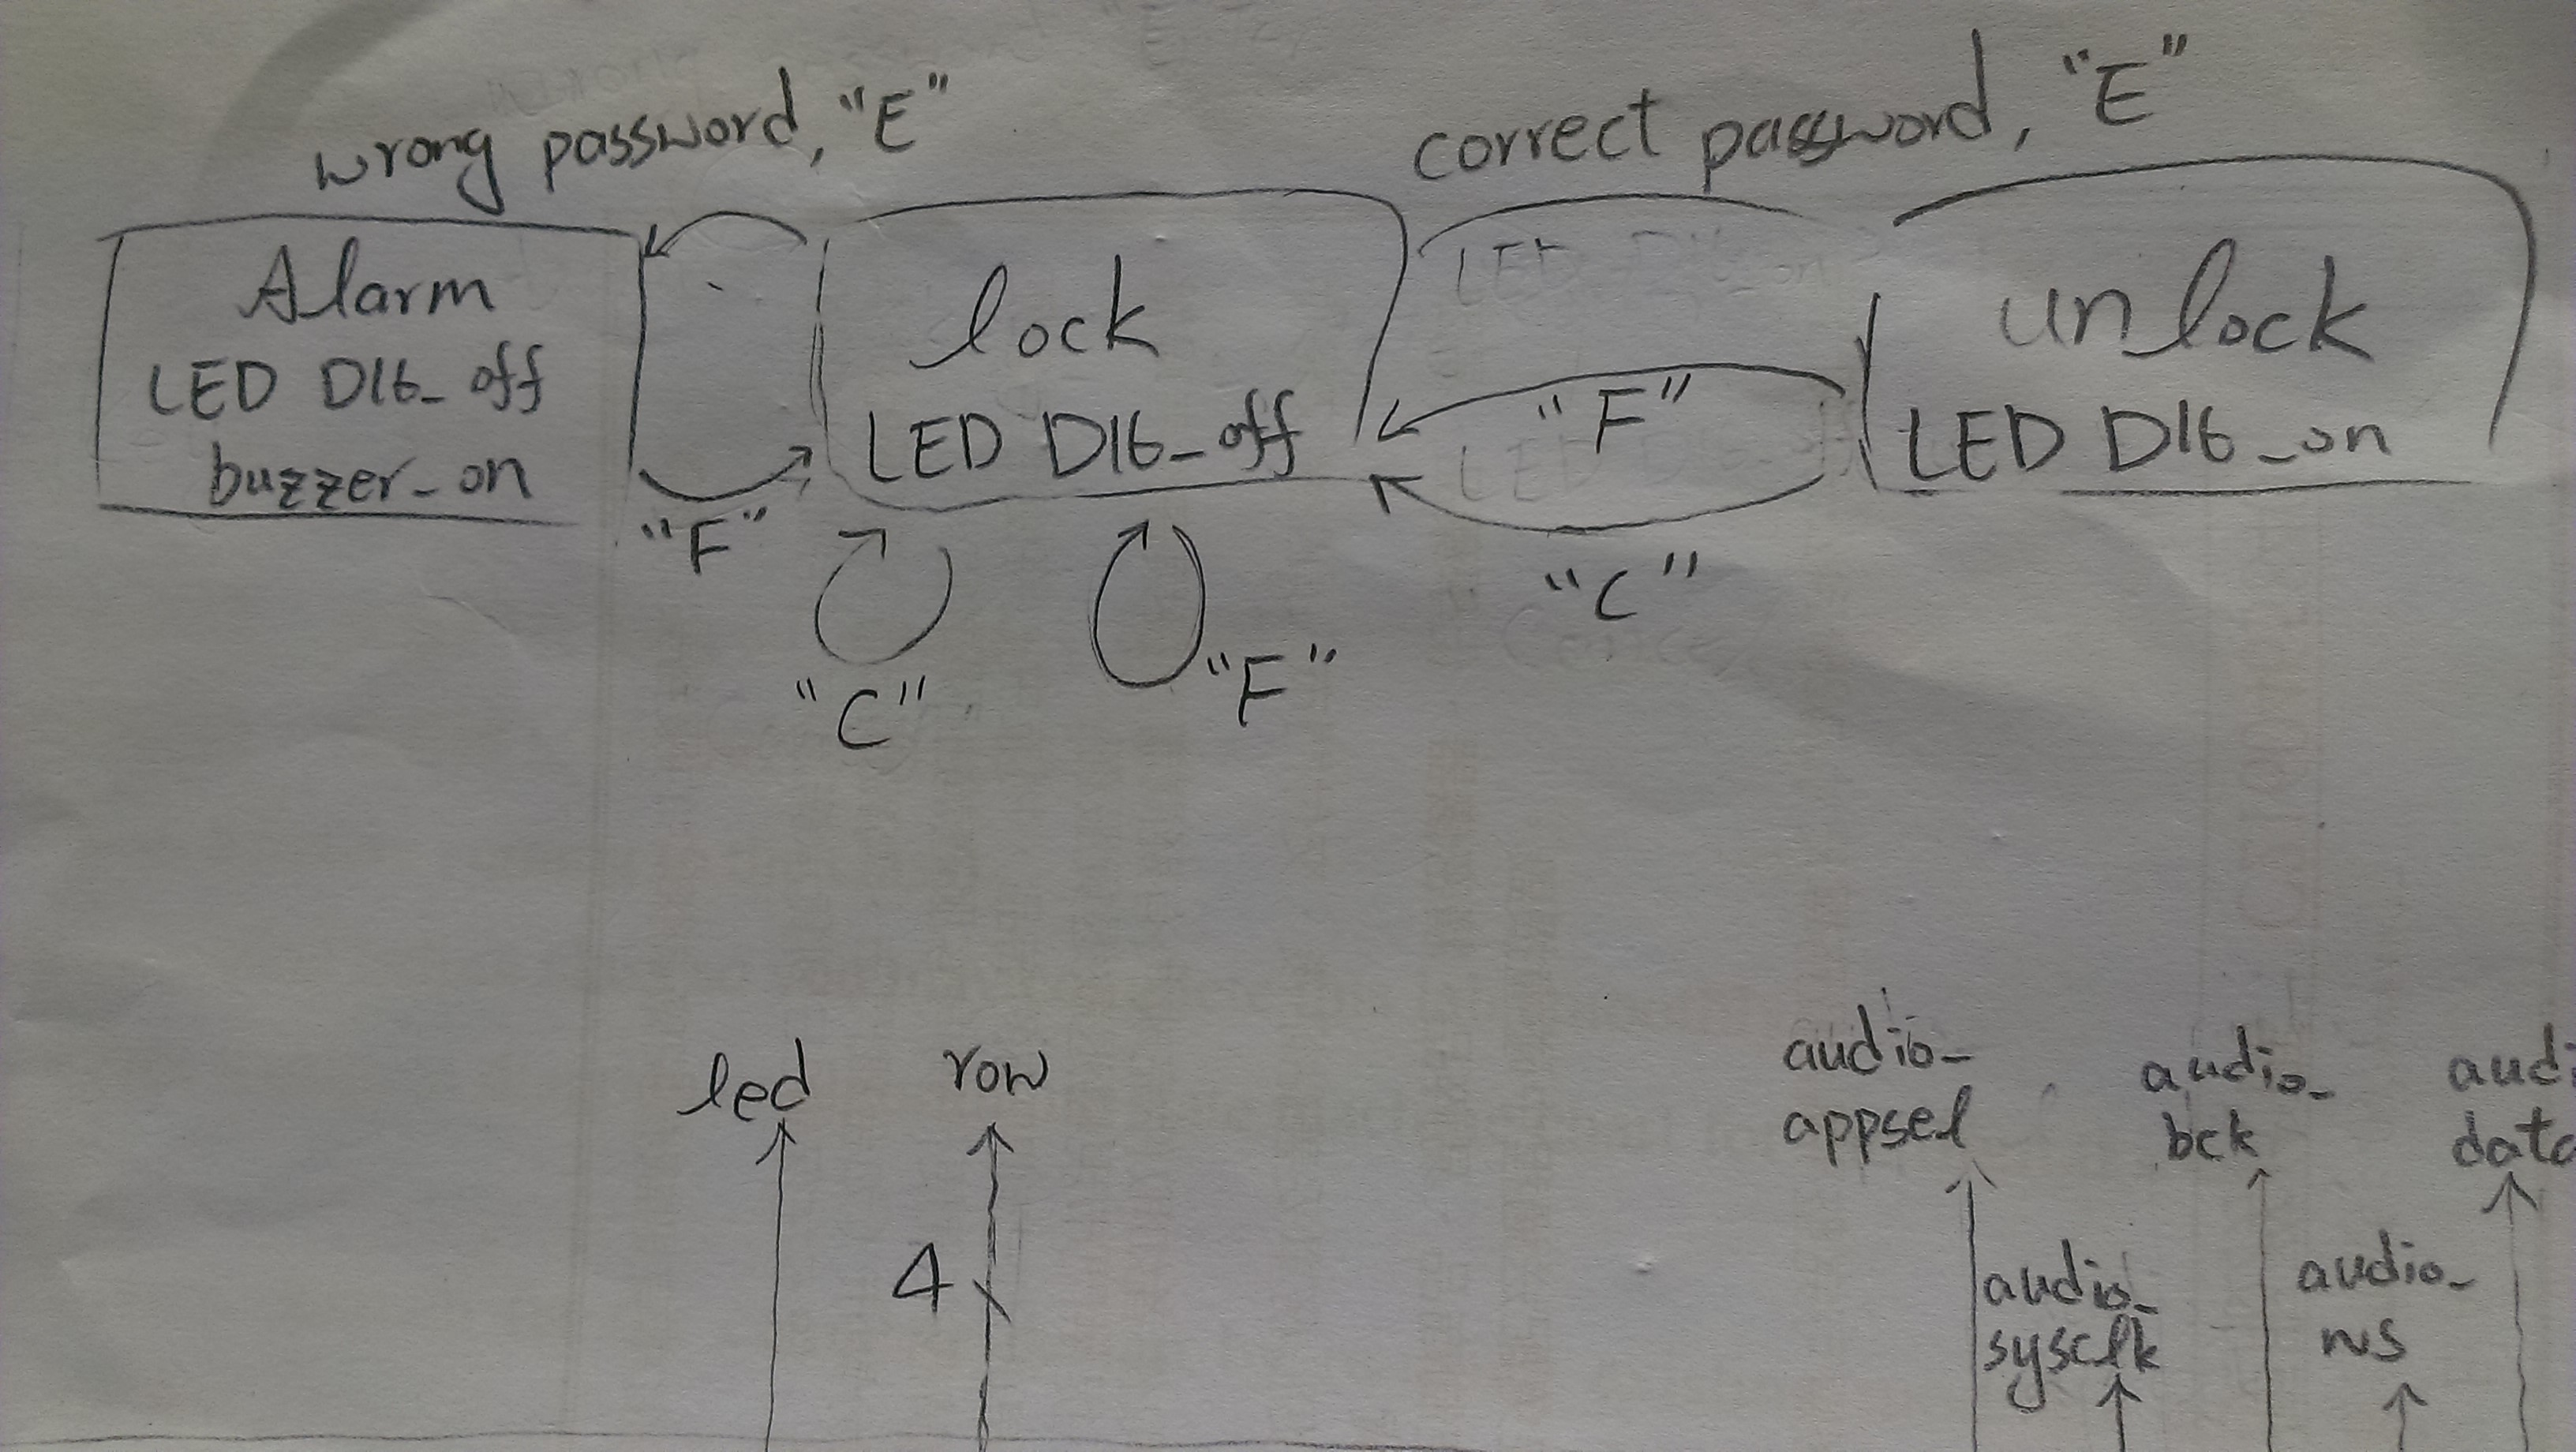 wrong password, "E"
correct password, "E"
Alarm
LED D16_off
buzzer_on
lock
LED D16_off
unlock
LED D16_on
"F"
"F"
"C"
"C"
"F"
led
row
4
audio_
appsel
audio_
bck
data
audio_
sysclk
audio_
ws